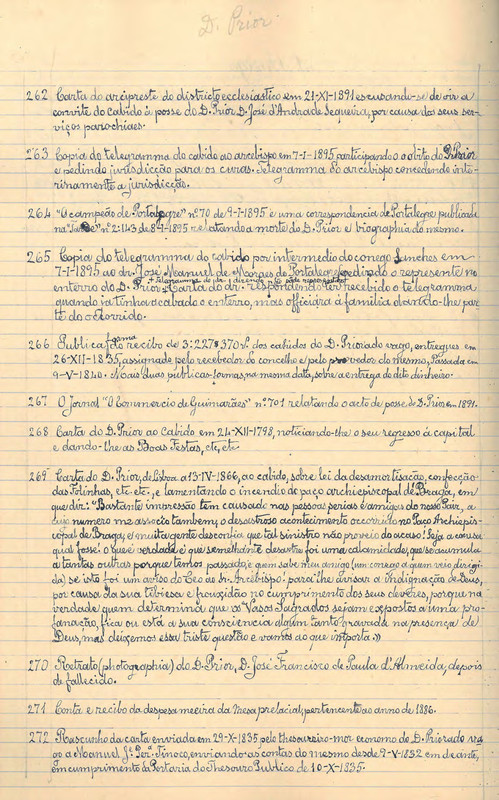 D. Prior
262 Carta do arcipreste do districto ecclesiastico em 21-XI-1891 escusando-se de vir a
convite do cabido à posse do D. Prior D. José d'Andrade Sequeira, por causa dos seus ser-
viços parochiaes.
263 Copia do telegramma do cabido ao arcebispo em 7-I-1895 participando o obito do D. Prior
e pedindo jurisdicção para os curas. Telegramma do arcebispo concedendo inte-
rinamente a jurisdicção.
264 "O campeão de Portalegre" nº 70 de 9-I-1895 e uma correspondencia de Portalegre publicada
na "Tarde" nº 2:143 de 8-I-1895 relatando a morte do D. Prior e biographia do mesmo.
265 Copia do telegramma do cabido por intermedio do conego Senches em
7-I-1895 ao dr. José Manuel de Moraes de Portalegre pedindo o represente no
enterro do D. Pr. + Telegramma do dr. dizendo não pode representar
+ Carta do dr. respondendo ter recebido o telegramma
quando já tinha acabado o enterro, mas officiára á familia dando-lhe par-
te do occorrido.
266 Publica forma do recibo de 3:227$370 rs. dos cahidos do D. Priorado vago, entregues em
26-XII-1835, assignado pelo recebedor do concelho e pelo provedor do mesmo, Passada em
9-V-1840. No ais duas publicas-formas, na mesma data, sobre a entrega do dito dinheiro.
267 O Jornal "O Commercio de Guimarães" nº 701 relatando o acto de posse do D. Prior em 1891.
268 Carta do D. Prior ao Cabido em 24-XII-1798, noticiando-lhe o seu regresso á capital
e dando-lhe as Boas Festas, etc, etc.
269 Carta do D. Prior, de Lisboa a 13-IV-1866, ao cabido, sobre lei da desamortisação, confecção
das Folinhas, etc. etc., e lamentando o incendio do paço archiepiscopal de Braga, em
que dir: "Bastante impressão tem causado nas pessoas serias e amigos do nosso Paiz, a
cujo numero me associo tambem, o desastroso acontecimento occorrido no Paço Archiepis-
copal de Braga, e muita gente desconfia que tal sinistro não proveio do acaso! Seja a causa
qual fosse. O que é verdade é que semelhante desastre foi uma calamidade, que se accumula
a tantas outras porque temos passado; e quem sabe meu amigo (um conego a quem veio dirigi-
da) se isto foi um aviso do Ceo ao Sr. Arcebispo! para lhe avisar a indignação de Deus,
por causa da sua tibiesa e frouxidão no cumprimento dos seus deveres, porque na
verdade quem determina que os Vasos Sagrados sejam expostos a uma pro-
fanação, fica ou está a sua consciencia algum tanto gravada na presença de
Deus, mas deixemos essa triste questão e vamos ao que importa.»
270 Retrato (photographia) do D. Prior, D. José Francisco de Paula d'Almeida, depois
de fallecido.
271 Conta e recibo da despesa meeira da Mesa prelacial, pertencente ao anno de 1886.
272 Rascunho da carta enviada em 29-X-1835 pelo thesoureiro-mor economo do D. Priorado va-
go a Manuel Jé. Perª. Tinoco, enviando as contas do mesmo desde 9-V-1832 em deante,
em cumprimento da Portaria do Thesouro Publico de 10-X-1835.